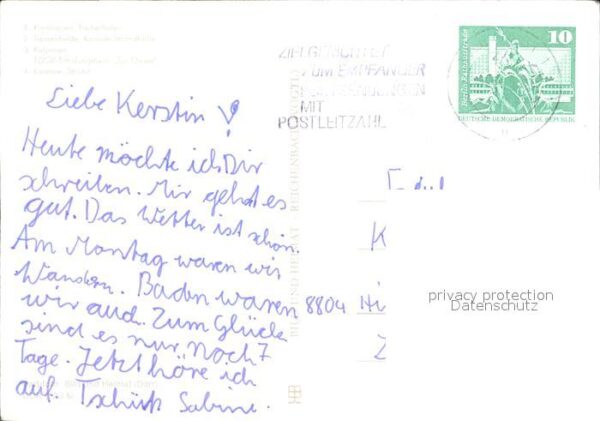 ZIELGERICHTET
ZUM EMPFANGER
SENDUNGEN
MIT
POSTLEITZAHL
10
DEUTSCHE DEMOKRATISCHE REPUBLIK
Liebe Kerstin!
Heute möchte ich Dir
schreiben. Mir geht es
gut. Das Wetter ist schön.
Am Montag waren wir
Wandern. Baden waren
wir auch. Zum Glück
sind es nur noch 7
Tage. Jetzt höre ich
auf. Tschüß Sabine.
BILD UND HEIMAT REICHENBACH
K
8804
Z
privacy protection
Datenschutz